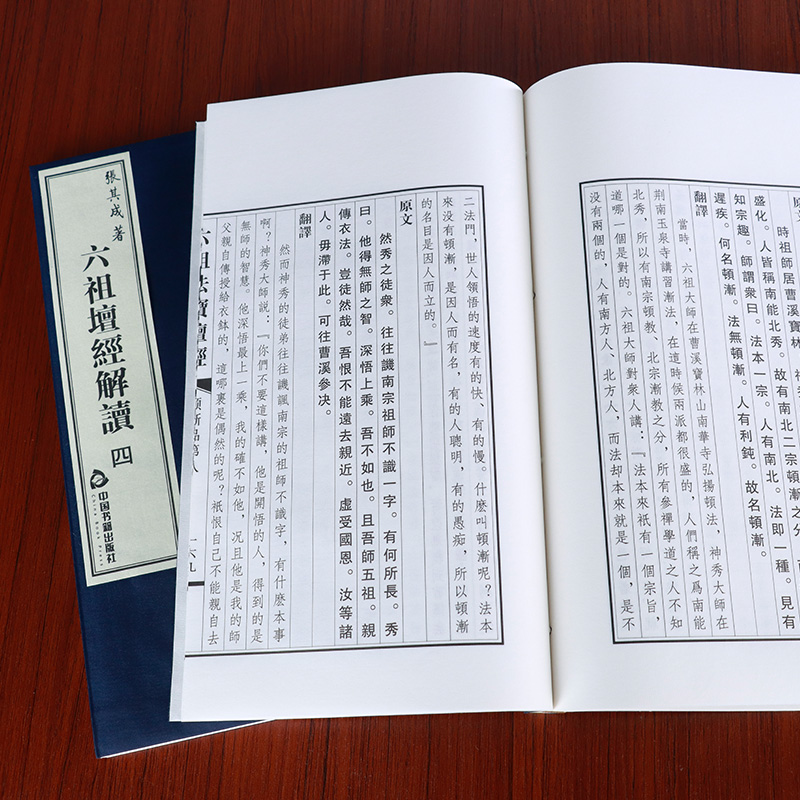 張其成 著
六祖壇經解讀 四
中国书籍出版社
China Book Press
原文
時祖師居曹溪寶林
盛化。人皆稱南能北秀。故有南北二宗頓漸之分
知宗趣。師謂衆曰。法本一宗。人有南北。法即一種。見有
遲疾。何名頓漸。法無頓漸。人有利鈍。故名頓漸。
翻譯
當時，六祖大師在曹溪寶林山南華寺弘揚頓法，神秀大師在
荆南玉泉寺講習漸法，在這時候兩派都很盛的，人們稱之爲南能
北秀，所以有南宗頓教、北宗漸教之分，所有參禪學道之人不知
道哪一個是對的。六祖大師對衆人講：『法本來祇有一個宗旨，
没有兩個的，人有南方人、北方人，而法却本來就是一個，是不
二法門，世人領悟的速度有的快、有的慢。什麽叫頓漸呢？法本
來没有頓漸，是因人而有名，有的人聰明，有的愚痴，所以頓漸
的名目是因人而立的。』
原文
然秀之徒衆。往往譏南宗祖師不識一字。有何所長。秀
曰。他得無師之智。深悟上乘。吾不如也。且吾師五祖。親
傳衣法。豈徒然哉。吾恨不能遠去親近。虚受國恩。汝等諸
人。毋滯于此。可往曹溪參决。
翻譯
然而神秀的徒弟往往譏諷南宗的祖師不識字，有什麽本事
啊？神秀大師説：『你們不要這樣講，他是開悟的人，得到的是
無師的智慧。他深悟最上一乘，我的確不如他，况且他是我的師
父親自傳授給衣鉢的，這哪裏是偶然的呢？祇恨自己不能親自去
六祖法寶壇經
頓漸品第八
一六九